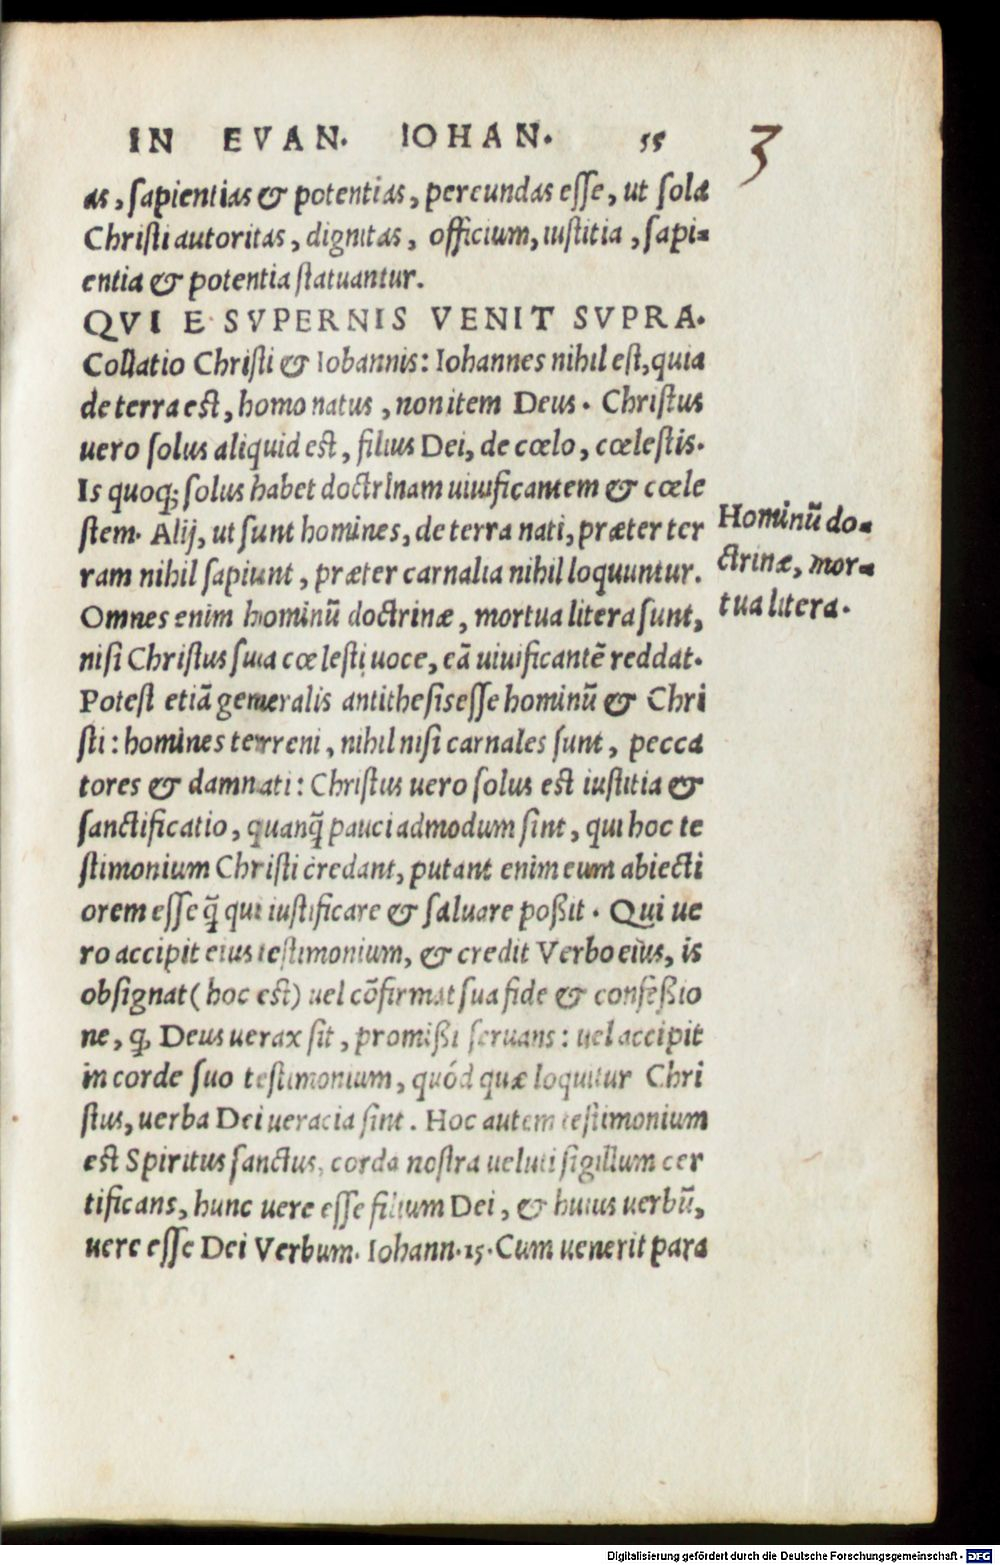 IN EVAN. IOHAN. 55
3
as, sapientias & potentias, pereundas esse, ut sola
Christi autoritas, dignitas, officium, iustitia, sapi-
entia & potentia statuantur.
QVI E SVPERNIS VENIT SVPRA.
Collatio Christi & Iohannis: Iohannes nihil est, quia
de terra est, homo natus, non item Deus. Christus
uero solus aliquid est, filius Dei, de cœlo, cœlestis.
Is quoq; solus habet doctrinam uiuificantem & cœle
stem. Alij, ut sunt homines, de terra nati, præter ter
ram nihil sapiunt, præter carnalia nihil loquuntur.
Omnes enim hominũ doctrinæ, mortua litera sunt,
nisi Christus sua cœlesti uoce, eã uiuificantẽ reddat.
Potest etiã generalis antithesis esse hominũ & Chri
sti: homines terreni, nihil nisi carnales sunt, pecca
tores & damnati: Christus uero solus est iustitia &
sanctificatio, quanq̃ pauci admodum sint, qui hoc te
stimonium Christi credant, putant enim eum abiecti
orem esse q̃ qui iustificare & saluare poßit. Qui ue
ro accipit eius testimonium, & credit Verbo eius, is
obsignat (hoc est) uel cõfirmat sua fide & confeßio
ne, ꝙ Deus uerax sit, promißi seruans: uel accipit
in corde suo testimonium, quód quæ loquitur Chri
stus, uerba Dei ueracia sint. Hoc autem testimonium
est Spiritus sanctus, corda nostra ueluti sigillum cer
tificans, hunc uere esse filium Dei, & huius uerbũ,
uere esse Dei Verbum. Iohann. 15. Cum uenerit para
Hominũ do-
ctrinæ, mor-
tua litera.
Digitalisierung gefördert durch die Deutsche Forschungsgemeinschaft - DFG